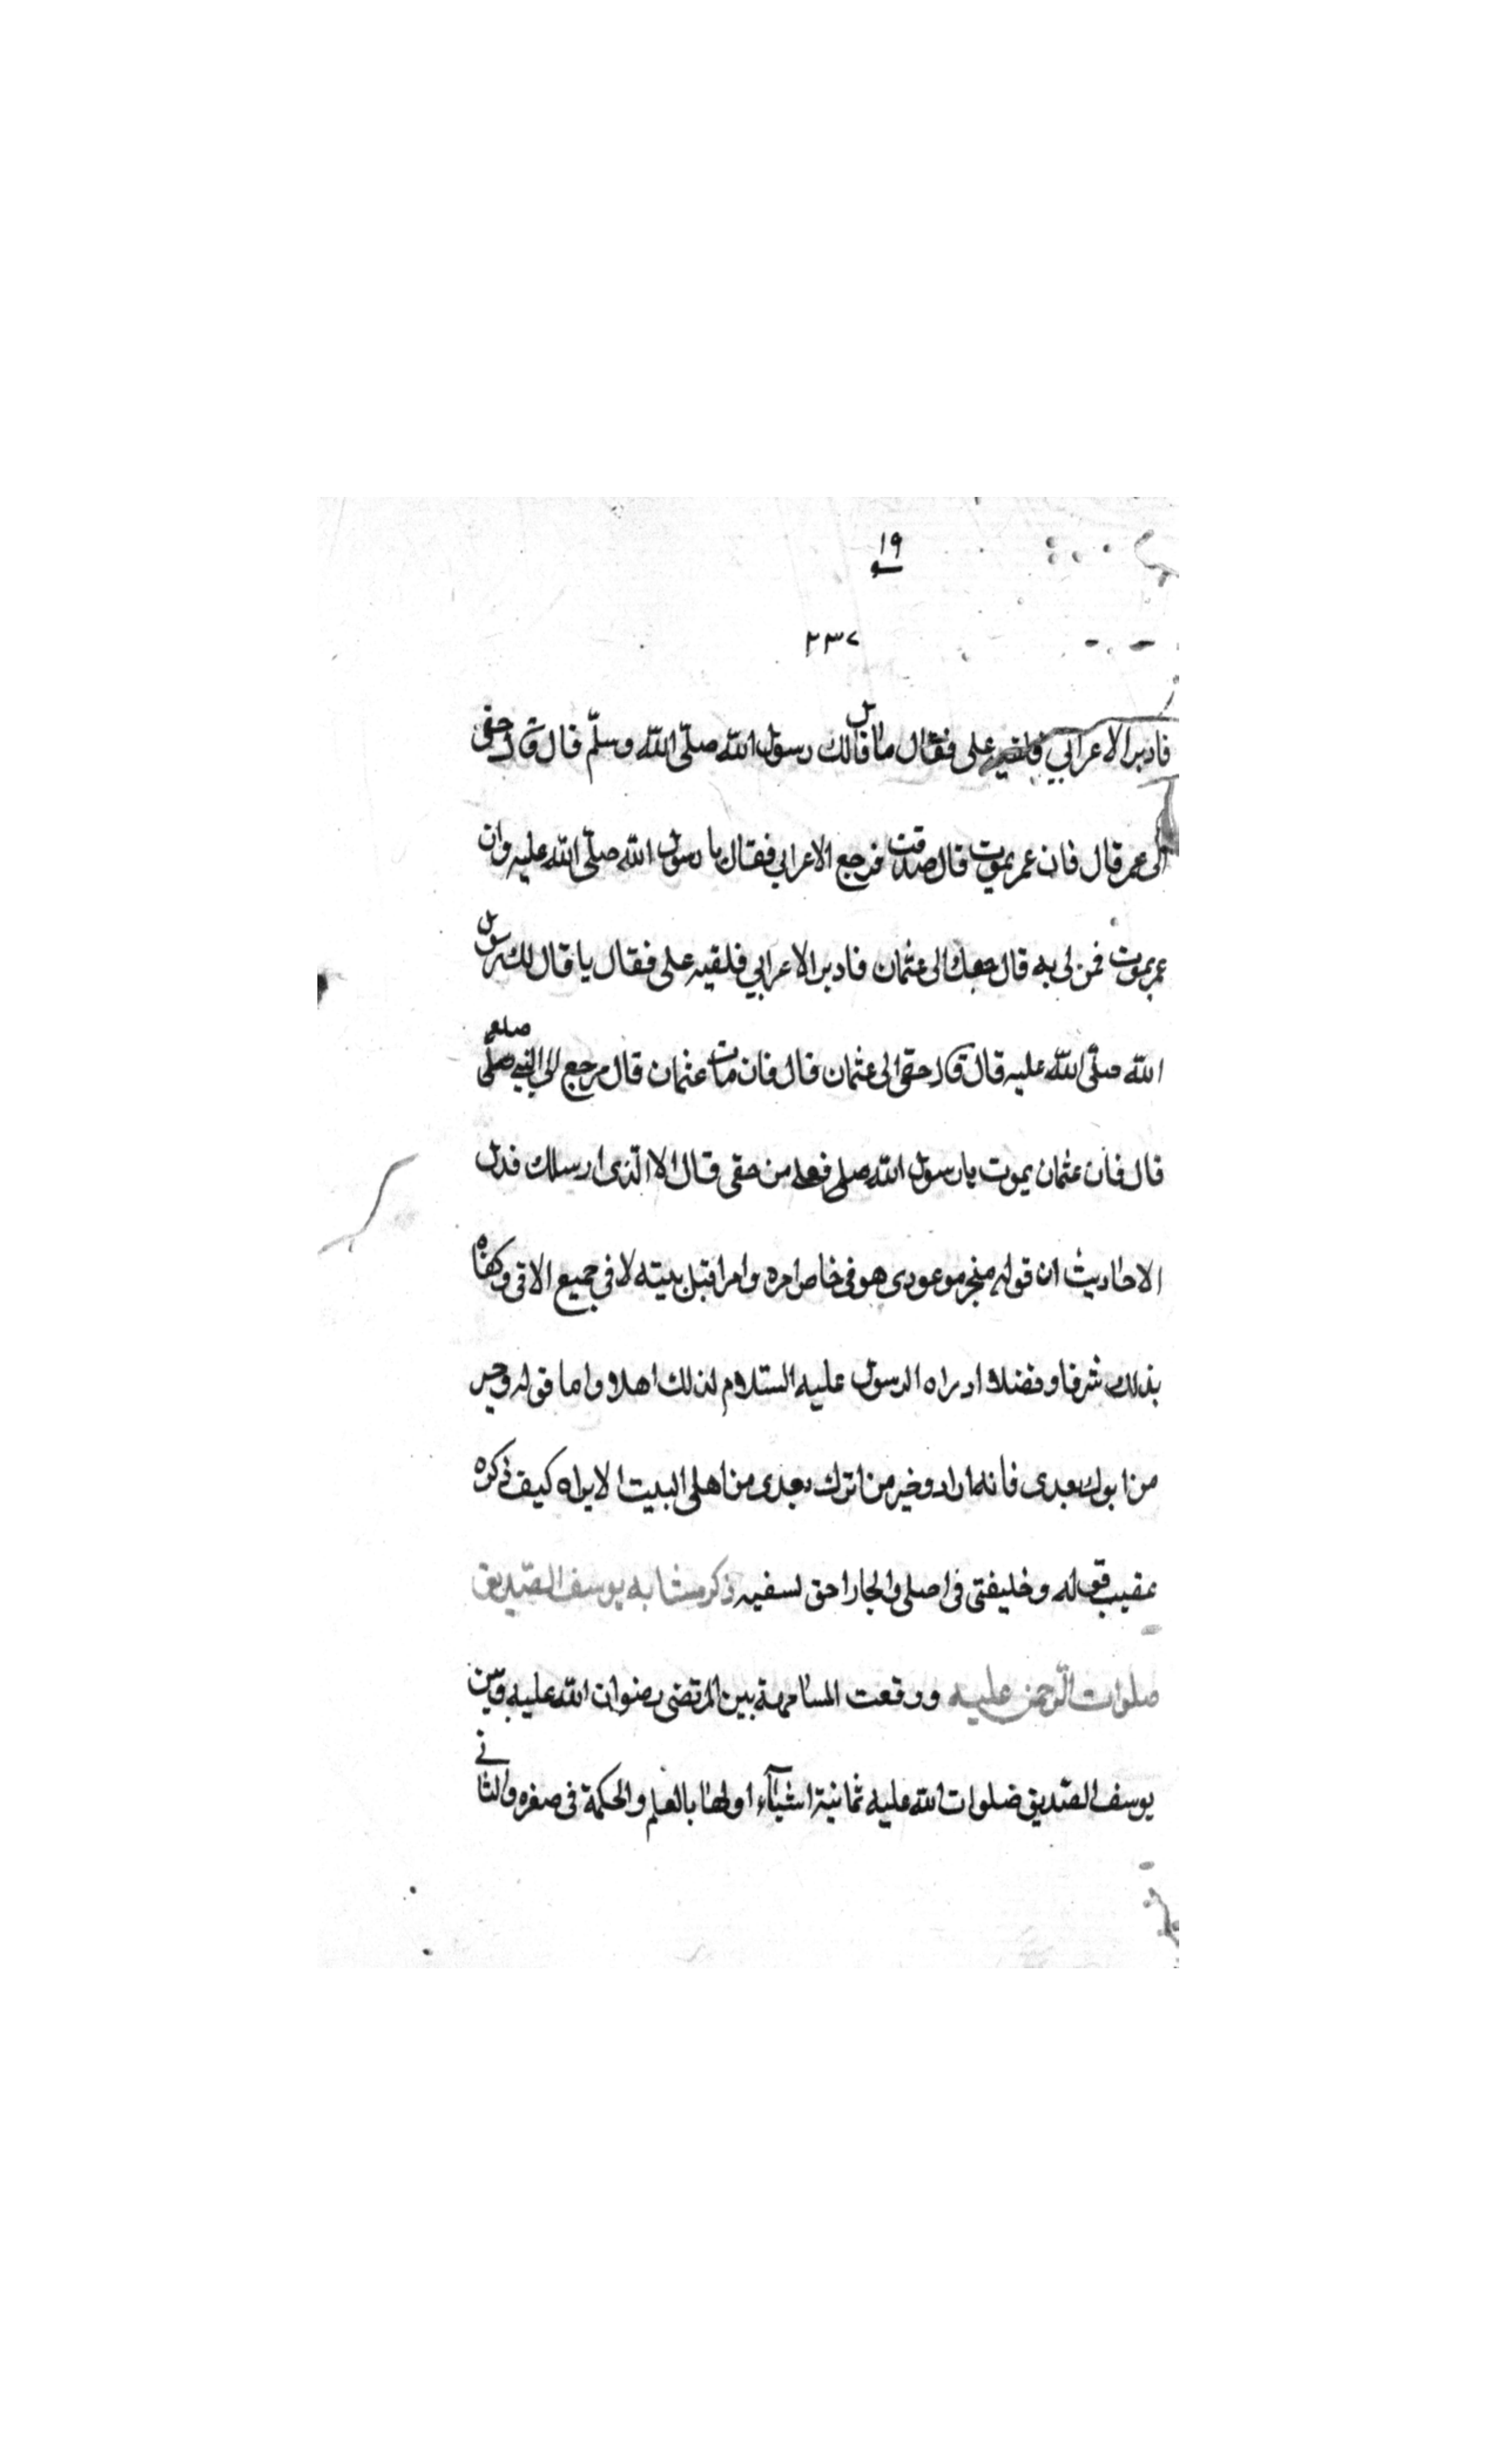 ١٩
٢٣٧
فادبر الاعرابي فلقيه على فقال ما قال لك رسول الله صلّى الله وسلّم قال قال حقى
الى عمر قال فان عمر يموت قال صدقت فرجع الاعرابي فقال يا رسول الله صلّى الله عليه وان
عمر يموت فمن لى به قال حقك الى عثمان فادبر الاعرابي فلقيه على فقال يا قال لك رسول
الله صلّى الله عليه قال قال حقى الى عثمان قال فان مات عثمان قال مرجع الى النبي صلّى صلعم
قال فان عثمان يموت يا رسول الله صلى فعله من حقى قال الا الّذى ارسلك فدل
الاحاديث ان قوله منجز موعودى هو فى خاص امره وامر اقبل بيته لا في جميع الاقى وكفاه
بذلك شرفا وفضلا اد براه الرسول عليه السّلام لذلك اهلا واما قوله وخير
من ابوك بعدى فانه اراد وخير من اترك بعدى من اهلى البيت الا يراه كيف ذكره
عقيب قوله وخليفتى فى اصلى والجار احق لسفيه ذكر مشابه يوسف الصّدّيق
صلوات الرّحمن عليه ووقعت المسامهة بين المرتضى رضوان الله عليه وبين
يوسف الصّديق ضلوات الله عليه ثمانية اشيآء اولها بالعلم والحكمة فى صغره والثانى